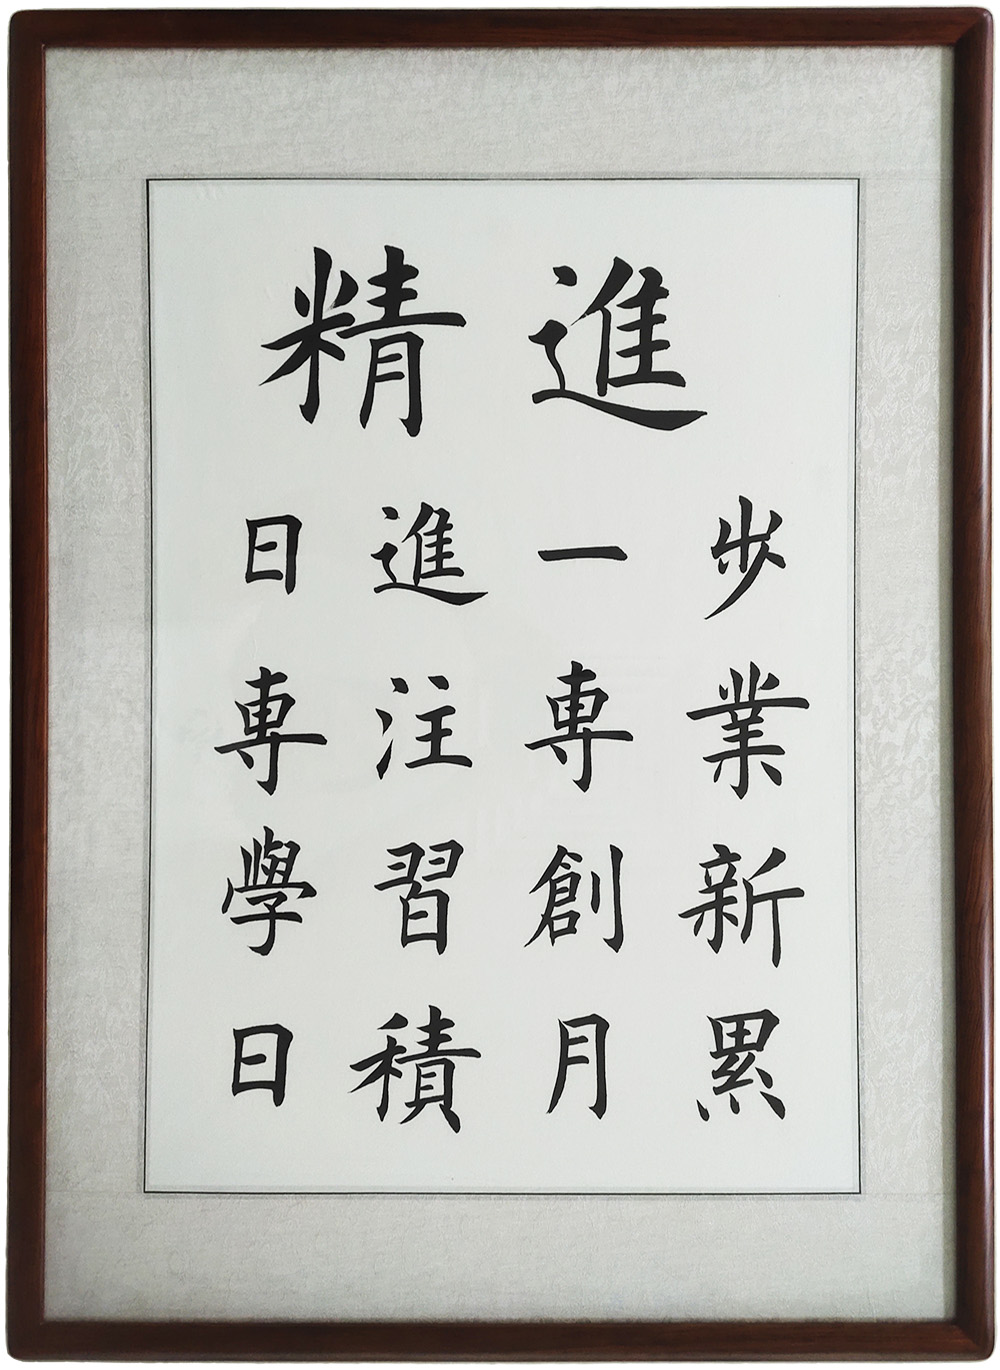 精進
日進一步
専注専業
學習創新
日積月累